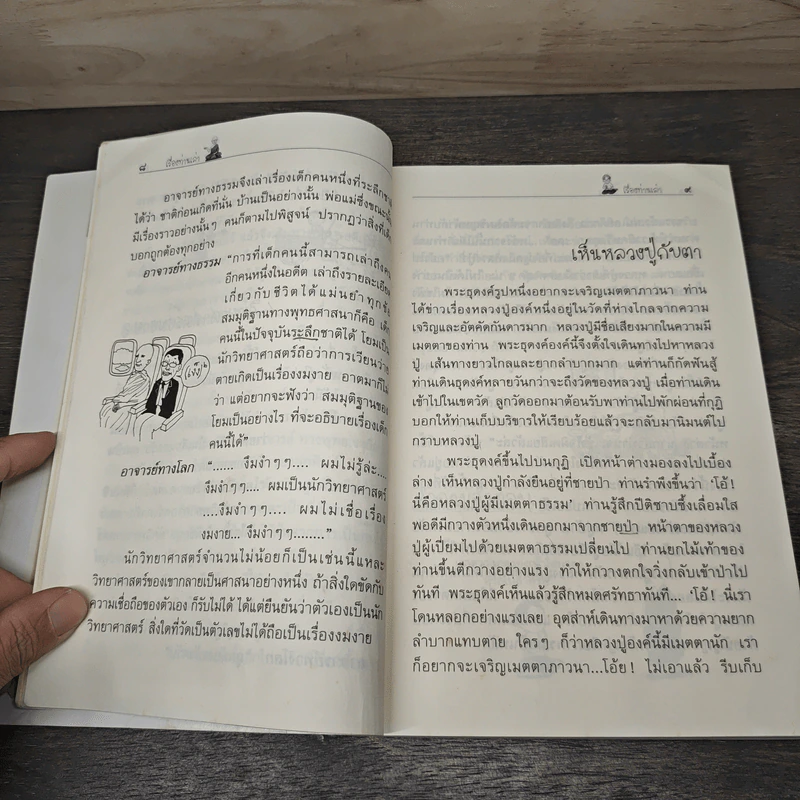 ๘ เรื่องท่านเล่า
อาจารย์ทางธรรมจึงเล่าเรื่องเด็กคนหนึ่งที่ระลึกชาติ
ได้ว่า ชาติก่อนเกิดที่นั่น บ้านเป็นอย่างนั้น พ่อแม่ชื่อ
มีเรื่องราวอย่างนั้นๆ คนก็ตามไปพิสูจน์ ปรากฏว่าสิ่งที่
บอกถูกต้องทุกอย่าง
อาจารย์ทางธรรม “การที่เด็กคนนี้สามารถเล่าถึง
อีกคนหนึ่งในอดีต เล่าถึงรายละเอียด
เกี่ยวกับชีวิตได้แม่นยำทุก
สมมุติฐานทางพุทธศาสนาก็คือ เด็ก
คนนี้ในปัจจุบันระลึกชาติได้ โยมเป็น
นักวิทยาศาสตร์ถือว่าการเวียนว่าย
ตายเกิดเป็นเรื่องงมงาย อาตมาก็ไม่
ว่า แต่อยากจะฟังว่า สมมุติฐานของ
โยมเป็นอย่างไร ที่จะอธิบายเรื่องเด็ก
คนนี้ได้”
อาจารย์ทางโลก “...... งึมงำๆๆ.... ผมไม่รู้ล่ะ....
งึมงำๆๆ.... ผมเป็นนักวิทยาศาสตร์
....งึมงำๆๆ.... ผมไม่เชื่อเรื่อง
งมงาย... งึมงำๆๆ........”
นักวิทยาศาสตร์จำนวนไม่น้อยก็เป็นเช่นนี้แหละ
วิทยาศาสตร์ของเขากลายเป็นศาสนาอย่างหนึ่ง ถ้าสิ่งใดขัดกับ
ความเชื่อถือของตัวเอง ก็รับไม่ได้ ได้แต่ยืนยันว่าตัวเองเป็นนัก
วิทยาศาสตร์ สิ่งใดที่วัดเป็นตัวเลขไม่ได้ถือเป็นเรื่องงมงาย
เรื่องท่านเล่า ๙
เห็นหลวงปู่กับตา
พระธุดงค์รูปหนึ่งอยากจะเจริญเมตตาภาวนา ท่าน
ได้ข่าวเรื่องหลวงปู่องค์หนึ่งอยู่ในวัดที่ห่างไกลจากความ
เจริญและอัตคัดกันดารมาก หลวงปู่มีชื่อเสียงมากในความมี
เมตตาของท่าน พระธุดงค์องค์นี้จึงตั้งใจเดินทางไปหาหลวง
ปู่ เส้นทางยาวไกลและยากลำบากมาก แต่ท่านก็กัดฟันสู้
ท่านเดินธุดงค์หลายวันกว่าจะถึงวัดของหลวงปู่ เมื่อท่านเดิน
เข้าไปในเขตวัด ลูกวัดออกมาต้อนรับพาท่านไปพักผ่อนที่กุฏิ
บอกให้ท่านเก็บบริขารให้เรียบร้อยแล้วจะกลับมานิมนต์ไป
กราบหลวงปู่
พระธุดงค์ขึ้นไปบนกุฏิ เปิดหน้าต่างมองลงไปเบื้อง
ล่าง เห็นหลวงปู่กำลังยืนอยู่ที่ชายป่า ท่านรำพึงขึ้นว่า ‘โอ้!
นี่คือหลวงปู่ผู้มีเมตตาธรรม’ ท่านรู้สึกปีติซาบซึ้งเลื่อมใส
พอดีมีกวางตัวหนึ่งเดินออกมาจากชายป่า หน้าตาของหลวง
ปู่ผู้เปี่ยมไปด้วยเมตตาธรรมเปลี่ยนไป ท่านยกไม้เท้าของ
ท่านขึ้นตีกวางอย่างแรง ทำให้กวางตกใจวิ่งกลับเข้าป่าไป
ทันที พระธุดงค์เห็นแล้วรู้สึกหมดศรัทธาทันที... ‘โอ้! นี่เรา
โดนหลอกอย่างแรงเลย อุตส่าห์เดินทางมาหาด้วยความยาก
ลำบากแทบตาย ใครๆ ก็ว่าหลวงปู่องค์นี้มีเมตตานัก เรา
ก็อยากจะเจริญเมตตาภาวนา...โอ้ย! ไม่เอาแล้ว รีบเก็บ